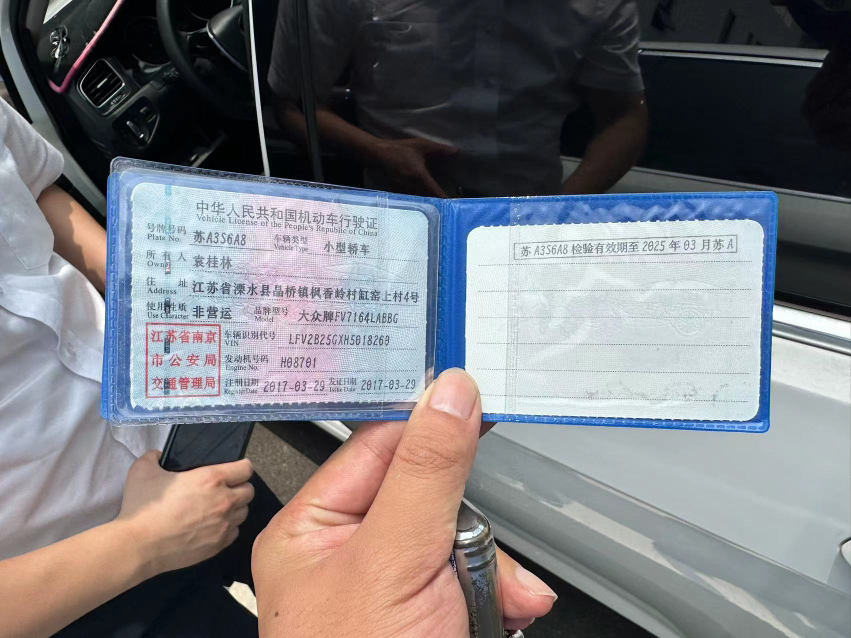 中华人民共和国机动车行驶证
Vehicle License of the People's Republic of China
号牌号码 苏A3S6A8 车辆类型 小型轿车
Plate No. Vehicle Type
所有人 袁桂林
Owner
住址 江苏省溧水县晶桥镇枫香岭村缸窑上村4号
Address
使用性质 非营运 品牌型号 大众牌FV7164LABBG
Use Character Model
江苏省南京
市公安局
交通管理局
车辆识别代号 LFV2B25GXH5018260
VIN
发动机号码 H08701
Engine No.
注册日期 2017-03-29 发证日期 2017-03-29
Register Date Issue Date
苏A3S6A8检验有效期至2025年03月苏A